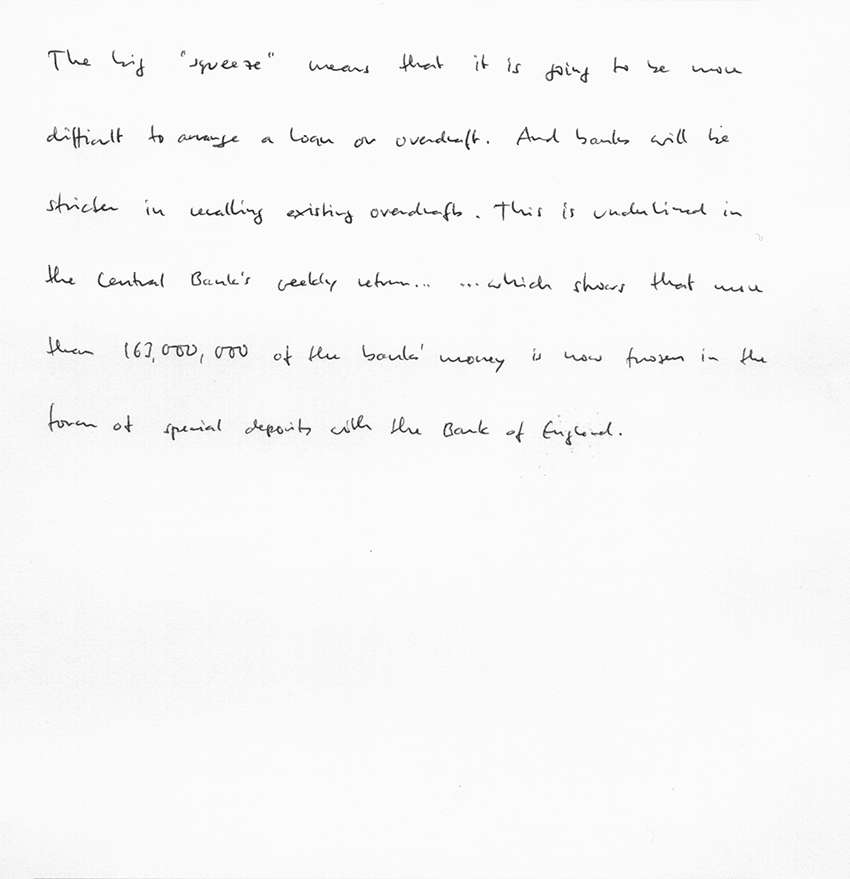 The big "squeeze" means that it is going to be more
difficult to arrange a loan or overdraft. And banks will be
stricter in recalling existing overdrafts. This is underlined in
the Central Bank's weekly return... ...which shows that more
than 163,000,000 of the banks' money is now frozen in the
form of special deposits with the Bank of England.